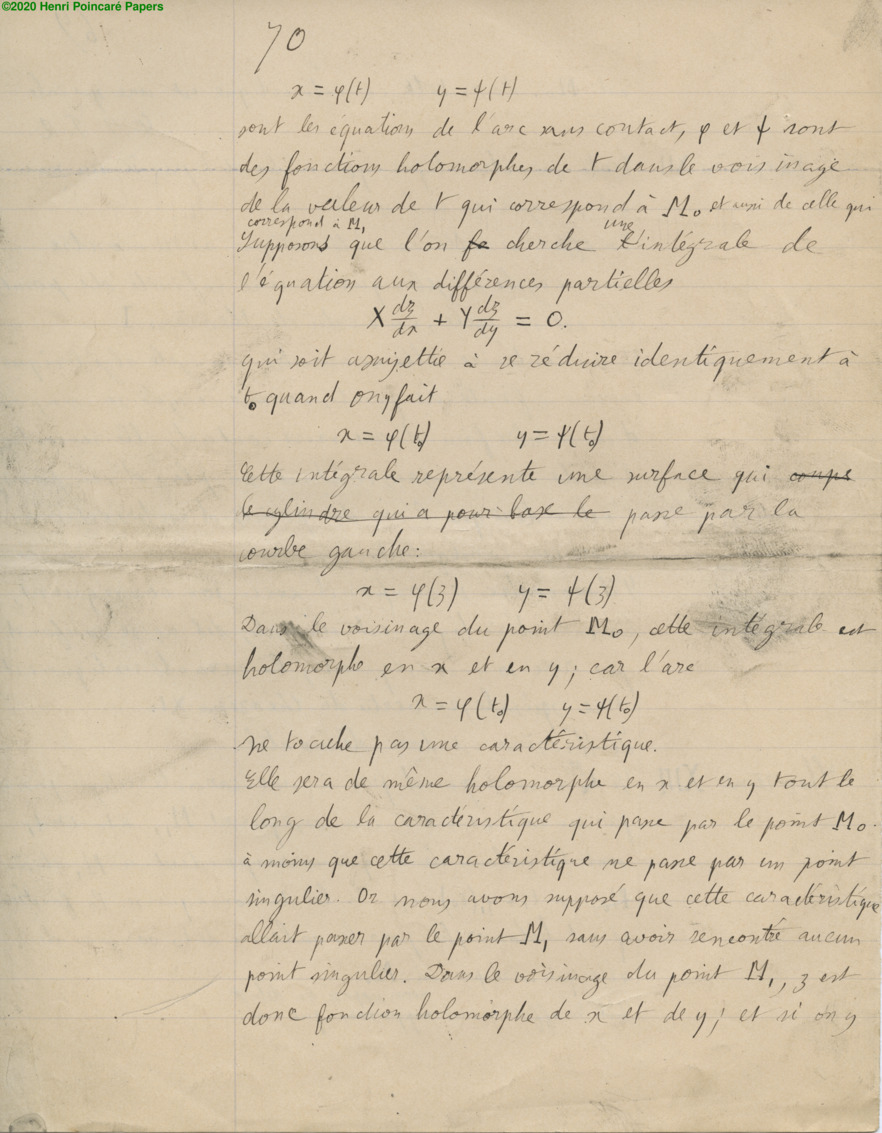 ©2020 Henri Poincaré Papers
70
x = φ(t) y = ψ(t)
sont les équations de l'arc sans contact, φ et ψ sont
des fonctions holomorphes de t dans le voisinage
de la valeur de t qui correspond à M₀ et aussi de celle qui
correspond à M₁
Supposons que l'on fe cherche une l'intégrale de
l'équation aux différences partielles
X dz/dx + Y dz/dy = 0.
qui soit assujettie à se réduire identiquement à
t₀ quand on y fait
x = φ(t₀) y = ψ(t₀)
Cette intégrale représente une surface qui coupe
le cylindre qui a pour base le passe par la
courbe gauche:
x = φ(z) y = ψ(z)
Dans le voisinage du point M₀, cette intégrale est
holomorphe en x et en y; car l'arc
x = φ(t₀) y = ψ(t₀)
ne touche pas une caractéristique.
Elle sera de même holomorphe en x et en y tout le
long de la caractéristique qui passe par le point M₀.
à moins que cette caractéristique ne passe par un point
singulier. Or nous avons supposé que cette caractéristique
allait passer par le point M₁ sans avoir rencontré aucun
point singulier. Dans le voisinage du point M₁, z est
donc fonction holomorphe de x et de y; et si on y